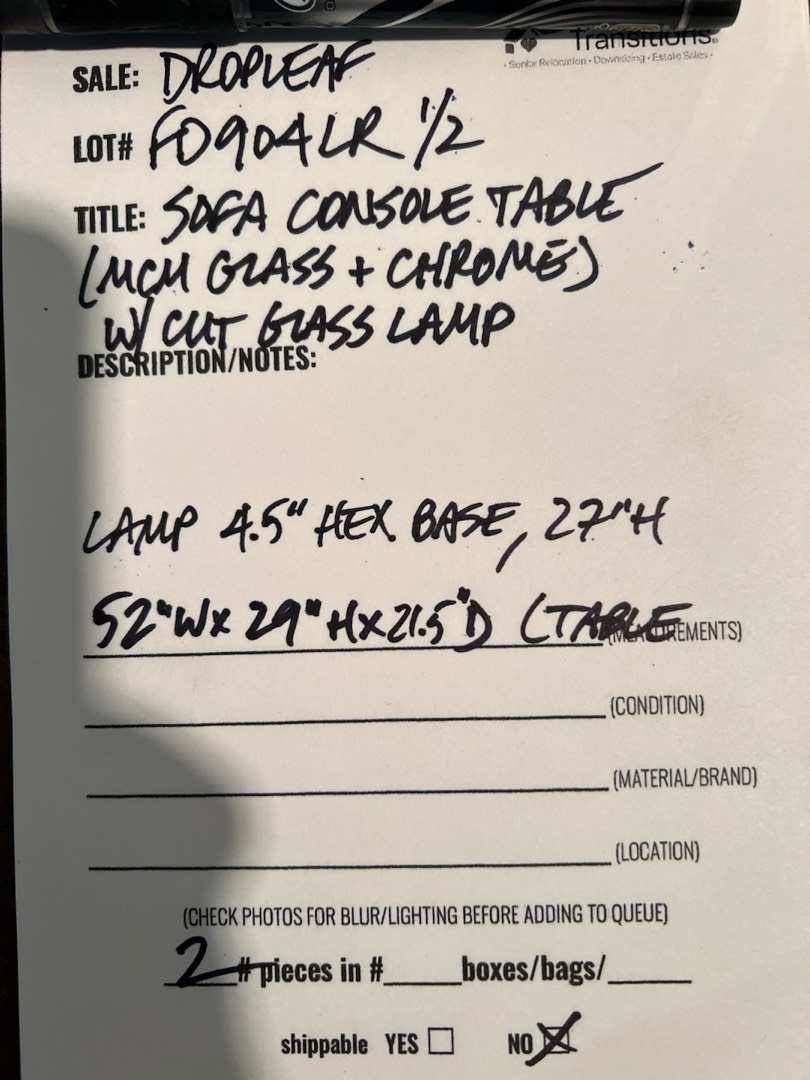 Transitions
• Senior Relocation • Downsizing • Estate Sales •
SALE: DROPLEAF
LOT# FD904LR 1/2
TITLE: SOFA CONSOLE TABLE
(MCM GLASS + CHROME)
W/ CUT GLASS LAMP
DESCRIPTION/NOTES:
LAMP 4.5" HEX BASE, 27"H
52"W x 29"H x 21.5"D (TABLE (MEASUREMENTS)
(CONDITION)
(MATERIAL/BRAND)
(LOCATION)
(CHECK PHOTOS FOR BLUR/LIGHTING BEFORE ADDING TO QUEUE)
2 # pieces in #_____boxes/bags/_____
shippable YES ☐ NO ☒